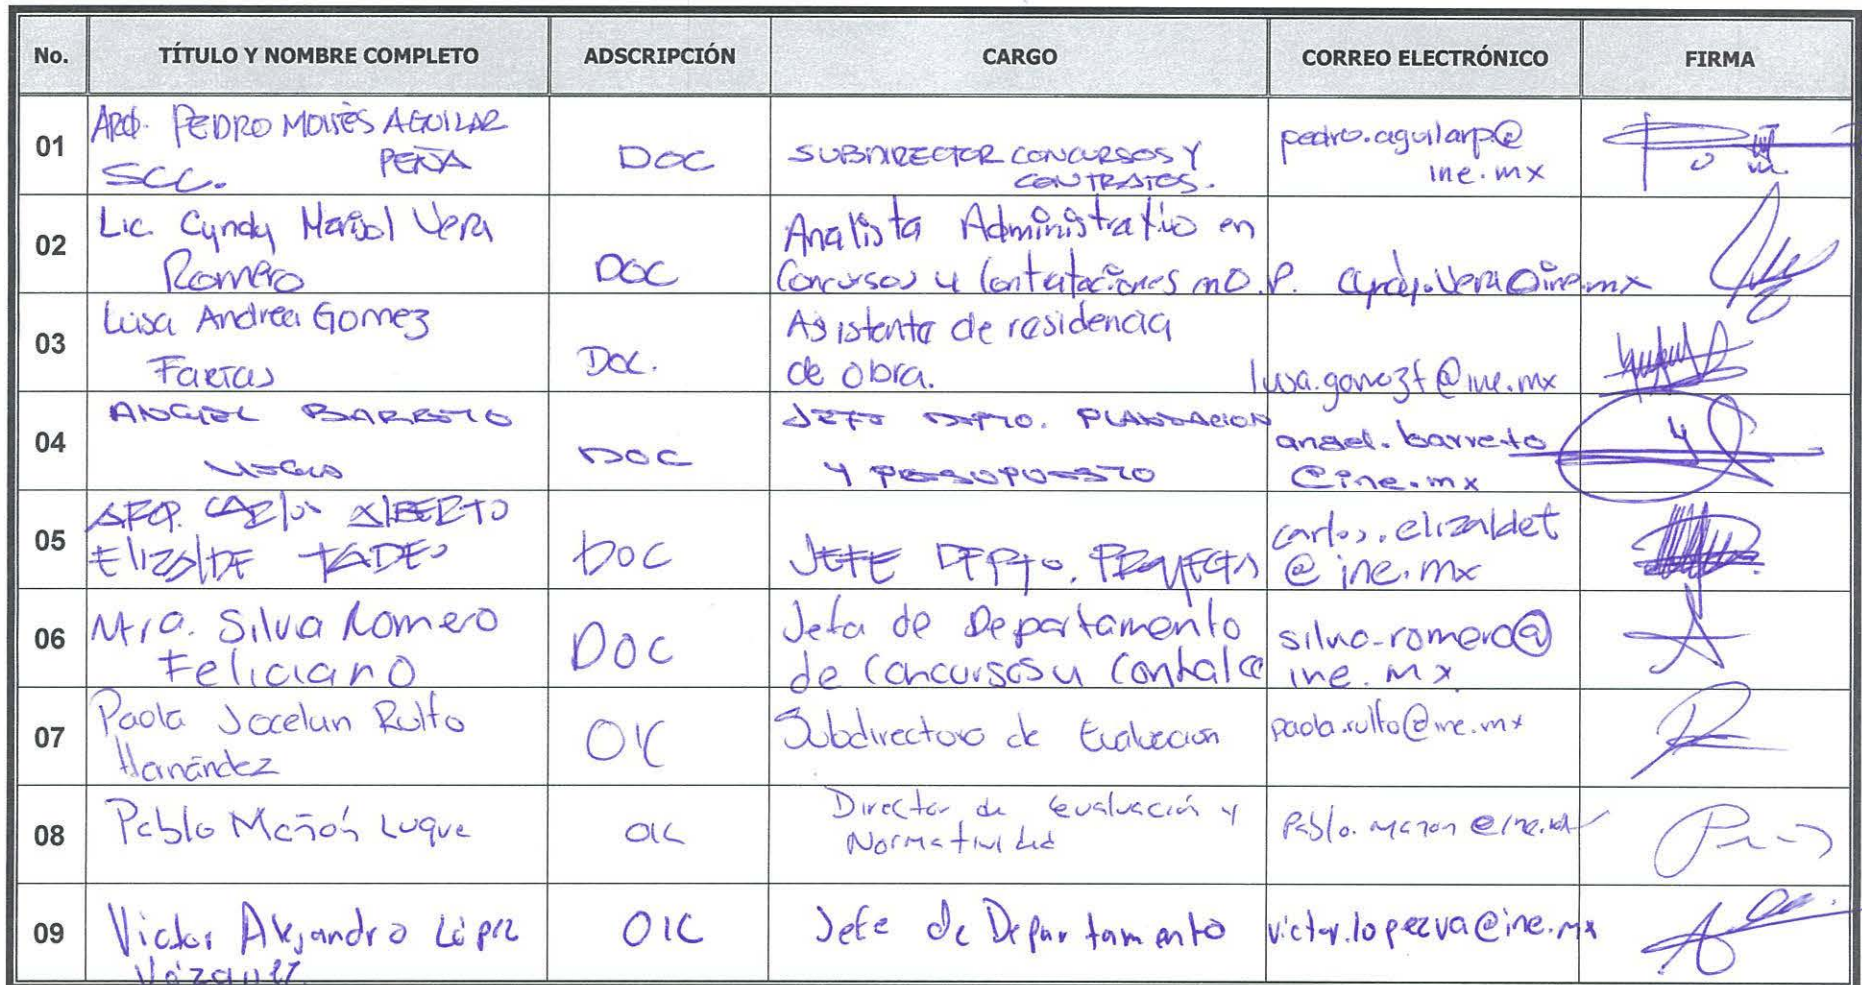 No. TÍTULO Y NOMBRE COMPLETO ADSCRIPCIÓN CARGO CORREO ELECTRÓNICO FIRMA
01 ARQ. PEDRO MOISÉS AGUILAR PEÑA SCC. DOC SUBDIRECTOR CONCURSOS Y CONTRATOS. pedro.aguilarp@ine.mx
02 Lic. Cyndy Marisol Vera Romero DOC Analista Administrativo en Concursos y Contrataciones en O.P. cyndy.vera@ine.mx
03 Luisa Andrea Gomez Farias DOC. Asistente de residencia de obra. luisa.gomezf@ine.mx
04 ANGEL BARRETO DOC JEFE DEPTO. PLANEACION Y PRESUPUESTO angel.barreto@ine.mx
05 ARQ. CARLOS ALBERTO ELIZALDE TADEO DOC JEFE DEPTO. PROYECTOS carlos.elizaldet@ine.mx
06 Mtra. Silvia Romero Feliciano DOC Jefa de Departamento de Concursos y silvia.romero@ine.mx
07 Paola Jocelun Rulfo Hernández OIC Subdirectora de Evaluación paola.rulfo@ine.mx
08 Pablo Mañón Luque OIC Director de Evaluación y Normatividad Pablo.manon@ine.mx
09 Victor Alejandro López Vázquez OIC Jefe de Departamento victor.lopezva@ine.mx